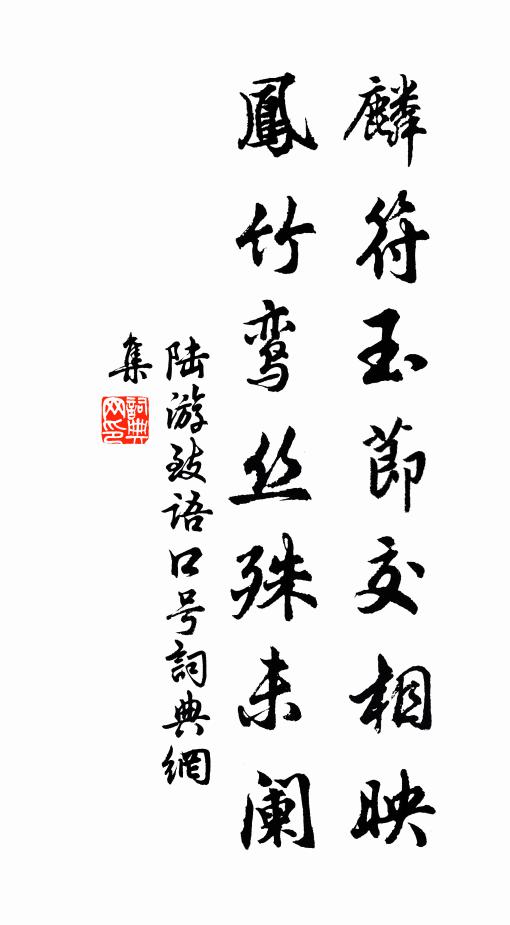 麟符玉節交相映
鳳竹鸾丝殊未阑
陆游致语口号詞典網
集
詞典网印